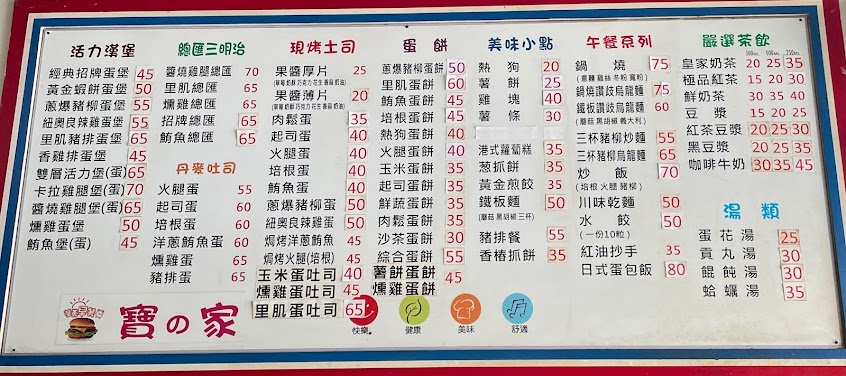 活力漢堡
經典招牌蛋堡 45
黃金蝦餅蛋堡 50
蔥爆豬柳蛋堡 55
紐奧良辣雞蛋堡 55
里肌豬排蛋堡 65
香雞排蛋堡 45
雙層活力堡(蛋) 65
卡拉雞腿堡(蛋) 70
醬燒雞腿堡(蛋) 65
燻雞蛋堡 50
鮪魚堡(蛋) 45
總匯三明治
醬燒雞腿總匯 70
里肌總匯 65
燻雞總匯 65
招牌總匯 65
鮪魚總匯 65
丹麥吐司
火腿蛋 55
起司蛋 60
培根蛋 60
洋蔥鮪魚蛋 60
燻雞蛋 65
豬排蛋 65
現烤土司
果醬厚片 25
果醬薄片 20
肉鬆蛋 35
起司蛋 40
火腿蛋 40
培根蛋 40
鮪魚蛋 40
蔥爆豬柳蛋 50
紐奧良辣雞蛋 50
焗烤洋蔥鮪魚 45
焗烤火腿(培根) 45
玉米蛋吐司 40
燻雞蛋吐司 45
里肌蛋吐司 65
蛋餅
蔥爆豬柳蛋餅 50
里肌蛋餅 60
鮪魚蛋餅 45
培根蛋餅 45
熱狗蛋餅 40
火腿蛋餅 40
玉米蛋餅 35
起司蛋餅 35
鮮蔬蛋餅 35
肉鬆蛋餅 35
沙茶蛋餅 30
綜合蛋餅 55
薯餅蛋餅 45
燻雞蛋餅
美味小點
熱狗 20
薯餅 25
雞塊 40
薯條 30
港式蘿蔔糕 35
葱抓餅 35
黃金煎餃 35
鐵板麵 50
(蘑菇 黑胡椒 三杯)
豬排餐 55
香椿抓餅 35
午餐系列
鍋燒 75
(意麵 雞絲 冬粉 寬粉)
鍋燒讚歧烏龍麵 75
鐵板讚歧烏龍麵 60
(蘑菇 黑胡椒 義大利)
三杯豬柳炒麵 55
三杯豬柳烏龍麵 65
炒飯 70
(培根 火腿 豬柳)
川味乾麵 50
水餃 50
(一份10粒)
紅油抄手 35
日式蛋包飯 80
嚴選茶飲
360ML 500ML 750ML
皇家奶茶 20 25 35
極品紅茶 15 20 30
鮮奶茶 30 35 40
豆漿 15 20 25
紅茶豆漿 20 25 30
黑豆漿 20 25 35
咖啡牛奶 30 35 45
湯類
蛋花湯 25
貢丸湯 30
餛飩湯 30
蛤蠣湯 35
寶の家
快樂
健康
美味
舒適